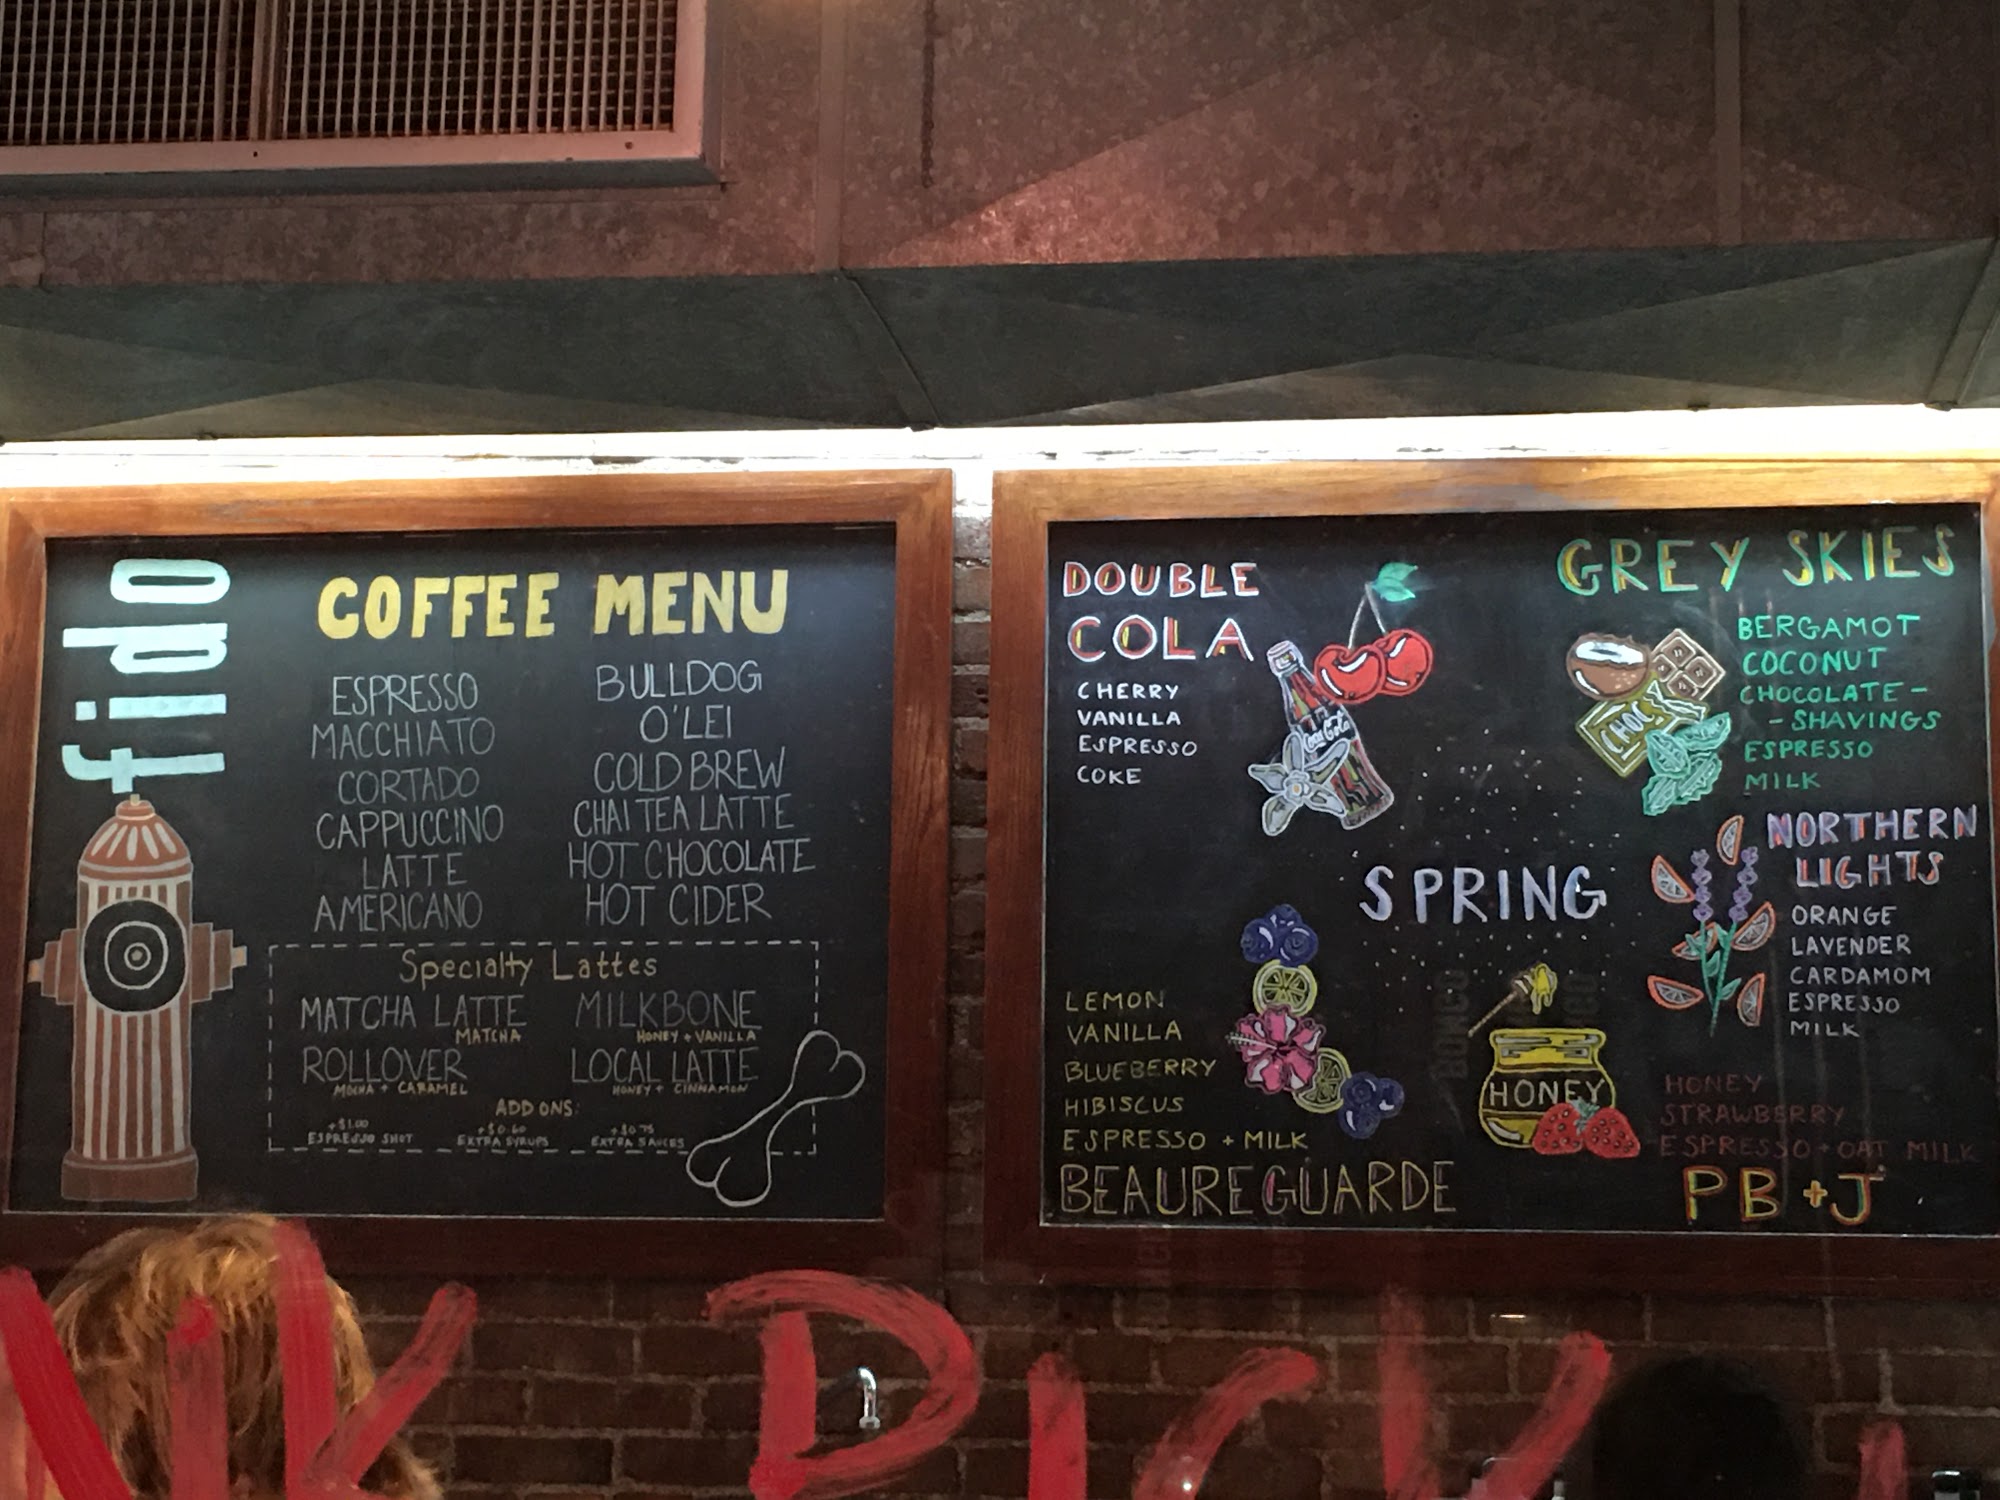 fido
COFFEE MENU
ESPRESSO
MACCHIATO
CORTADO
CAPPUCCINO
LATTE
AMERICANO
BULLDOG
O'LEI
COLD BREW
CHAI TEA LATTE
HOT CHOCOLATE
HOT CIDER
Specialty Lattes
MATCHA LATTE
MATCHA
ROLLOVER
MOCHA + CARAMEL
MILKBONE
HONEY + VANILLA
LOCAL LATTE
HONEY + CINNAMON
ADD ONS:
+$1.00
ESPRESSO SHOT
+$0.60
EXTRA SYRUPS
+$0.75
EXTRA SAUCES
DOUBLE
COLA
CHERRY
VANILLA
ESPRESSO
COKE
Coca-Cola
GREY SKIES
BERGAMOT
COCONUT
CHOCOLATE -
- SHAVINGS
ESPRESSO
MILK
CHOC
SPRING
NORTHERN
LIGHTS
ORANGE
LAVENDER
CARDAMOM
ESPRESSO
MILK
LEMON
VANILLA
BLUEBERRY
HIBISCUS
ESPRESSO + MILK
BEAUREGUARDE
HONEY
HONEY
STRAWBERRY
ESPRESSO + OAT MILK
PB + J